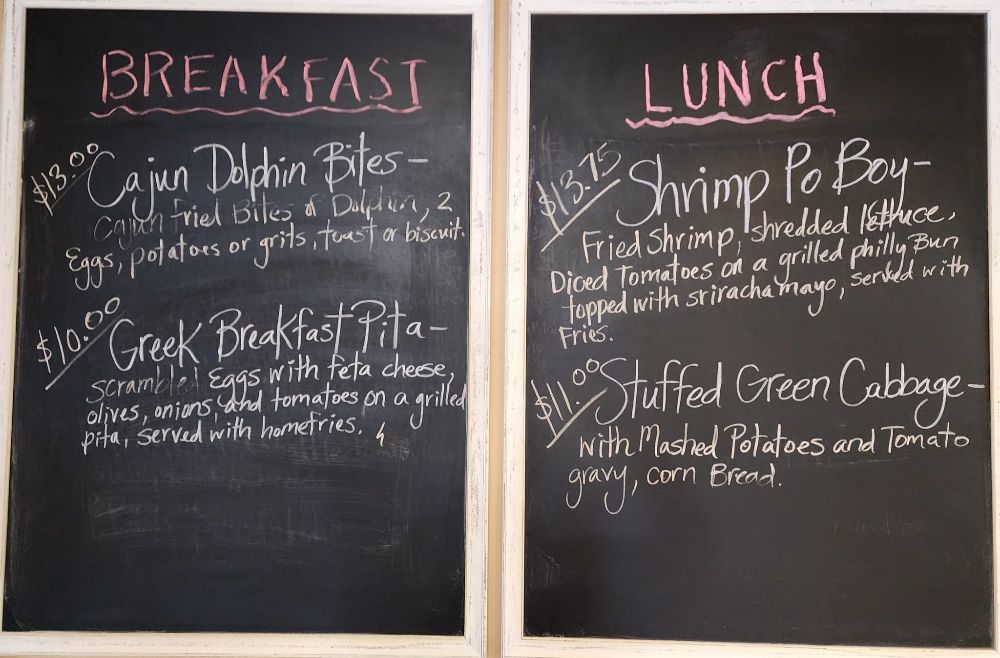 BREAKFAST
$13.00 Cajun Dolphin Bites-
Cajun fried Bites of Dolphin, 2
Eggs, potatoes or grits, toast or biscuit.
$10.00 Greek Breakfast Pita-
scrambled Eggs with feta cheese,
olives, onions, and tomatoes on a grilled
pita, served with homefries.
LUNCH
$13.75 Shrimp Po Boy-
Fried Shrimp, shredded lettuce,
Diced Tomatoes on a grilled philly Bun
topped with sriracha mayo, served with
Fries.
$11.00 Stuffed Green Cabbage-
with Mashed Potatoes and Tomato
gravy, corn Bread.